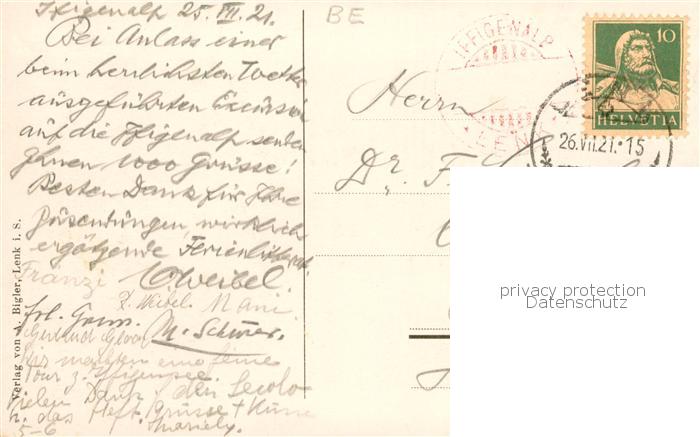 Iffigenalp 25. VII. 21.
Bei Anlass einer
beim herrlichsten Wetter
ausgeführten Excursion
auf die Iffigenalp senden
Ihnen 1000 Grüsse!
Besten Dank für Ihre
Zusendungen, wirklich
ergötzende Ferienlitterat.
Weibel.
Fränzi
Weibel. Mani.
M. Schürer.
Gertrud
Wir machten eine feine
Tour z. Iffigensee.
Vielen Dank f. den Secolo
u. das Heft. Grüsse + Küsse
5-6
Verlag von A. Bigler, Lenk i. S.
BE
IFFIGENALP
LENK
Herrn
Dr. F.
10
HELVETIA
26.VII.21.15
privacy protection
Datenschutz